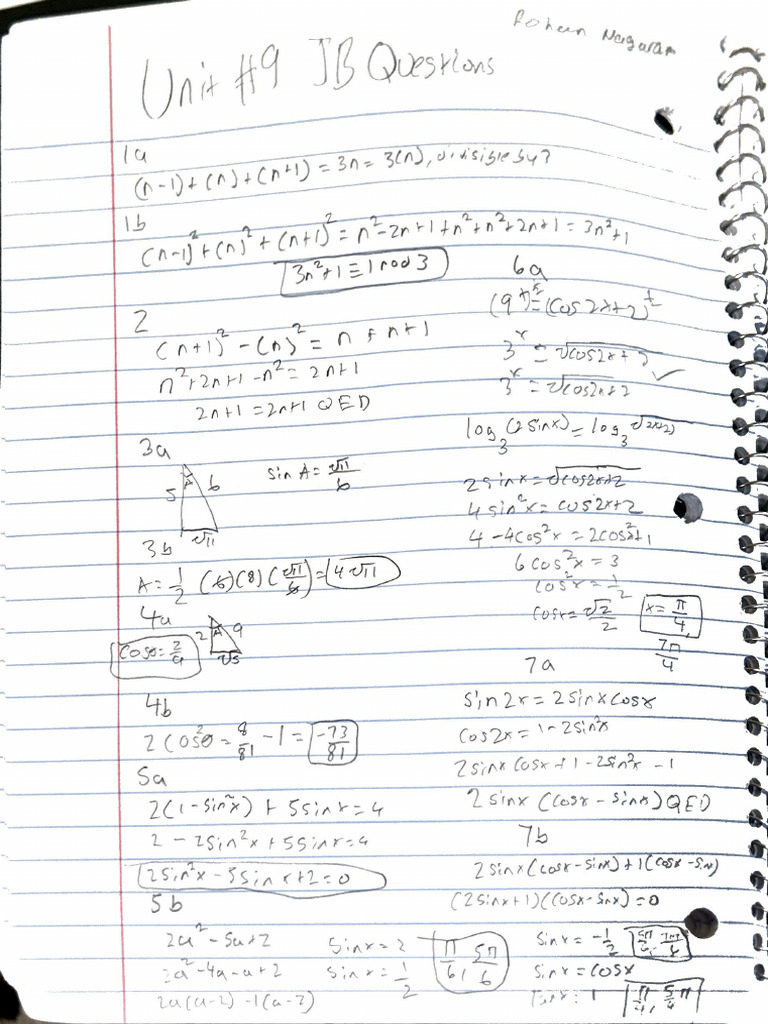 Rohan Nagaram
Unit #9 IB Questions
1a
(n-1)+(n)+(n+1)=3n=3(n), divisible by 3
1b
(n-1)²+(n)²+(n+1)²=n²-2n+1+n²+n²+2n+1=3n²+1
3n²+1≡1 mod 3
2
(n+1)²-(n)²=n+n+1
n²+2n+1-n²=2n+1
2n+1=2n+1 QED
3a
5 A 6 √11
sin A=√11/6
3b
A=1/2 (6)(8)(√11/6)=4√11
4a
2 A 9
cosθ=2/9
4b
2cos²θ=8/81-1=-73/81
5a
2(1-sin²x)+5sinx=4
2-2sin²x+5sinx=4
2sin²x-5sinx+2=0
5b
2a²-5a+2
2a²-4a-a+2
2a(a-2)-1(a-2)
sinx=2
sinx=1/2
π/6, 5π/6
6a
3ˣ=√cos2x+2
3ˣ=√cos2x+2 ✓
2sinx=√cos2x+2
4sin²x=cos2x+2
4-4cos²x=2cos²x+1
6cos²x=3
cos²x=1/2
cosx=√2/2
x=π/4,
7π/4
7a
sin2x=2sinxcosx
cos2x=1-2sin²x
2sinxcosx+1-2sin²x-1
2sinx(cosx-sinx) QED
7b
2sinx(cosx-sinx)+1(cosx-sinx)
(2sinx+1)(cosx-sinx)=0
sinx=-1/2
sinx=cosx
tanx=1
π/4, 5/4π